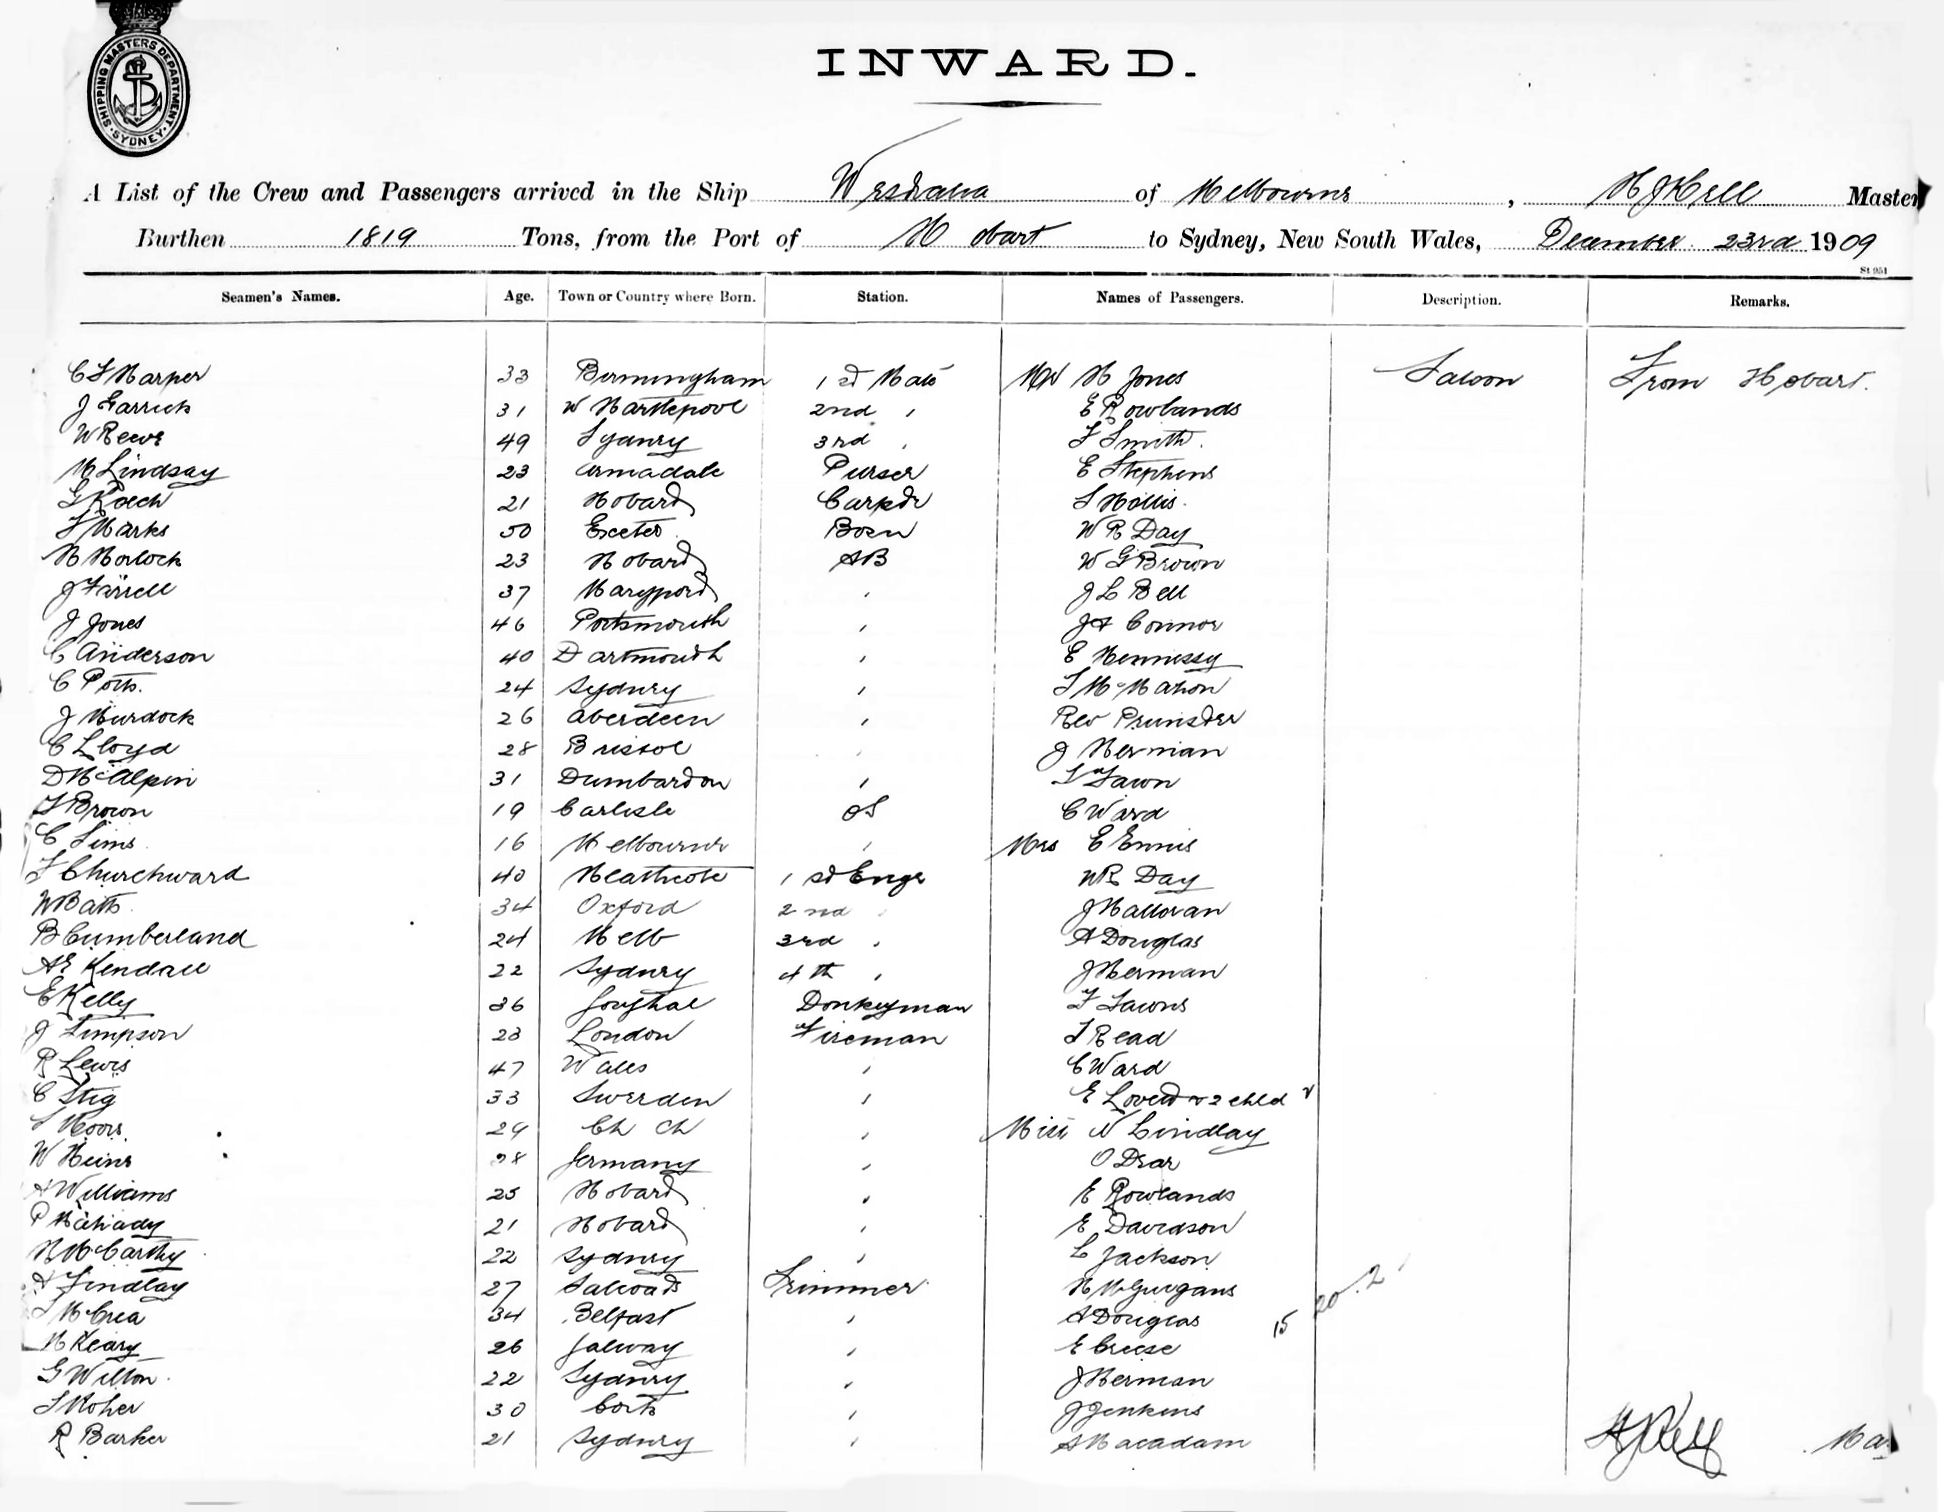 SHIPPING MASTERS DEPARTMENT. SYDNEY
INWARD.
A List of the Crew and Passengers arrived in the Ship Westralia of Melbourne, Master
Burthen 1819 Tons, from the Port of Hobart to Sydney, New South Wales, December 23rd 1909
St 951
Seamen's Names. Age. Town or Country where Born. Station. Names of Passengers. Description. Remarks.
C F Harper 33 Birmingham 1st Mate Mr H Jones Saloon From Hobart.
J Garrick 31 W Hartlepool 2nd , E Rowlands
49 Sydney 3rd , F Smith.
M Lindsay 23 Armadale Purser E Stephens
G Roach 21 Hobart Carptr S Hollis.
F Marks 50 Exeter. Bosn W R Day
H Horlock 23 Hobart AB W G Brown
J Farrell 37 Maryport , J L Bell
J Jones 46 Portsmouth , J A Connor
C Anderson 40 Dartmouth , E Hennessy
C Potts. 24 Sydney , T McMahon
J Murdock 26 Aberdeen , Rev
C Lloyd 28 Bristol , J Herman
D McAlpin 31 Dumbarton , Fawn
T Brown 19 Carlisle OS C Ward
C Sims 16 Melbourne , Mrs E Ennis
F Churchward 40 Heathcote 1st Engr W R Day
W Batts. 34 Oxford 2nd , J Halloran
B Cumberland 24 Melb 3rd , A Douglas
A E Kendall 22 Sydney 4th , J Herman
E Kelly 36 Donkeyman F Fawns
J Simpson 23 London Fireman T Read
R Lewis 47 Wales , C Ward
C Stig 33 Sweden , E Lovett & 2 chld
Moore 24 Ch Ch , Miss N Lindlay
W Heins 28 Germany , O Dear
A Williams 25 Hobart , E Rowlands
P Mahady 21 Hobart , E Davidson
H McCarthy 22 Sydney , L Jackson
A Findlay 27 Saltcoats Trimmer
McCrea 34 Belfast , A Douglas 15 20.2
M Keary 26 Galway , E Creese
G Wilton 22 Sydney , J Herman
T Maher 30 Cork , J Jenkins
R Barker 21 Sydney , A Macadam